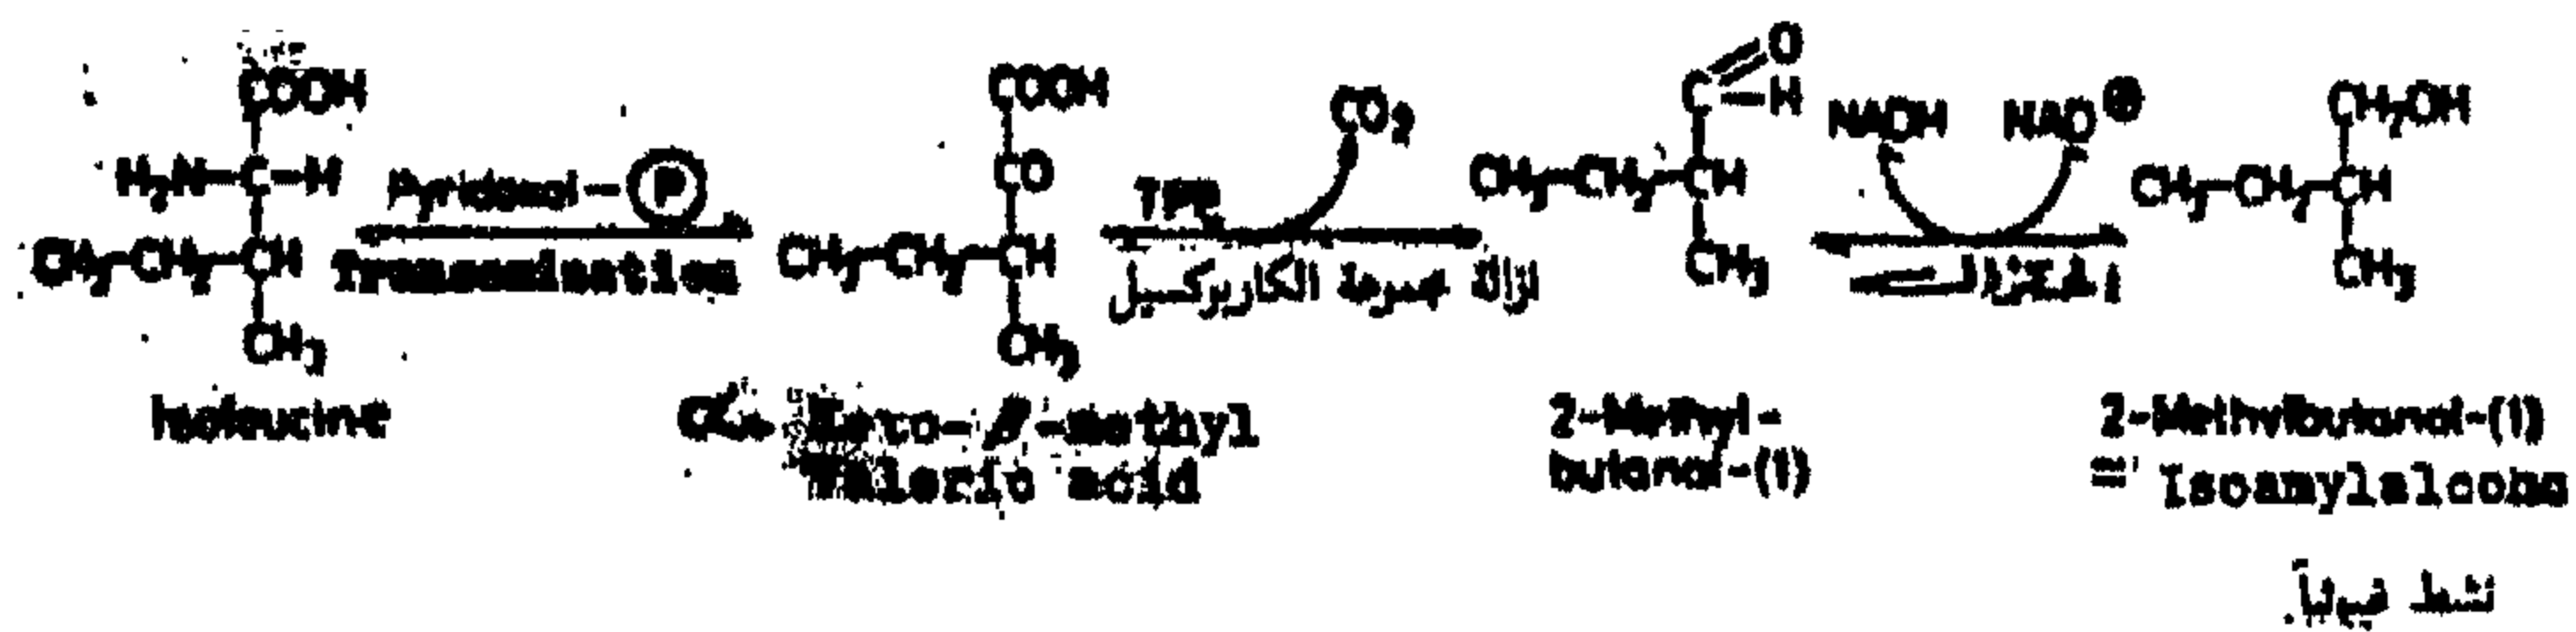 COOH
H₂N-C-H
CH₃-CH₂-CH
CH₃
Isoleucine
Pyridoxal-P
Transamination
COOH
CO
CH₃-CH₂-CH
CH₃
α-Keto-β-methyl
Valeric acid
TPP
CO₂
ازالة مجموعة الكاربوكسيل
C=O
-H
CH₃-CH₂-CH
CH₃
2-Methyl-
butanal-(1)
NADH NAD⊕
اختزال
CH₂OH
CH₃-CH₂-CH
CH₃
2-Methylbutanol-(1)
= Isoamylalcoho
نشط ضوئياً